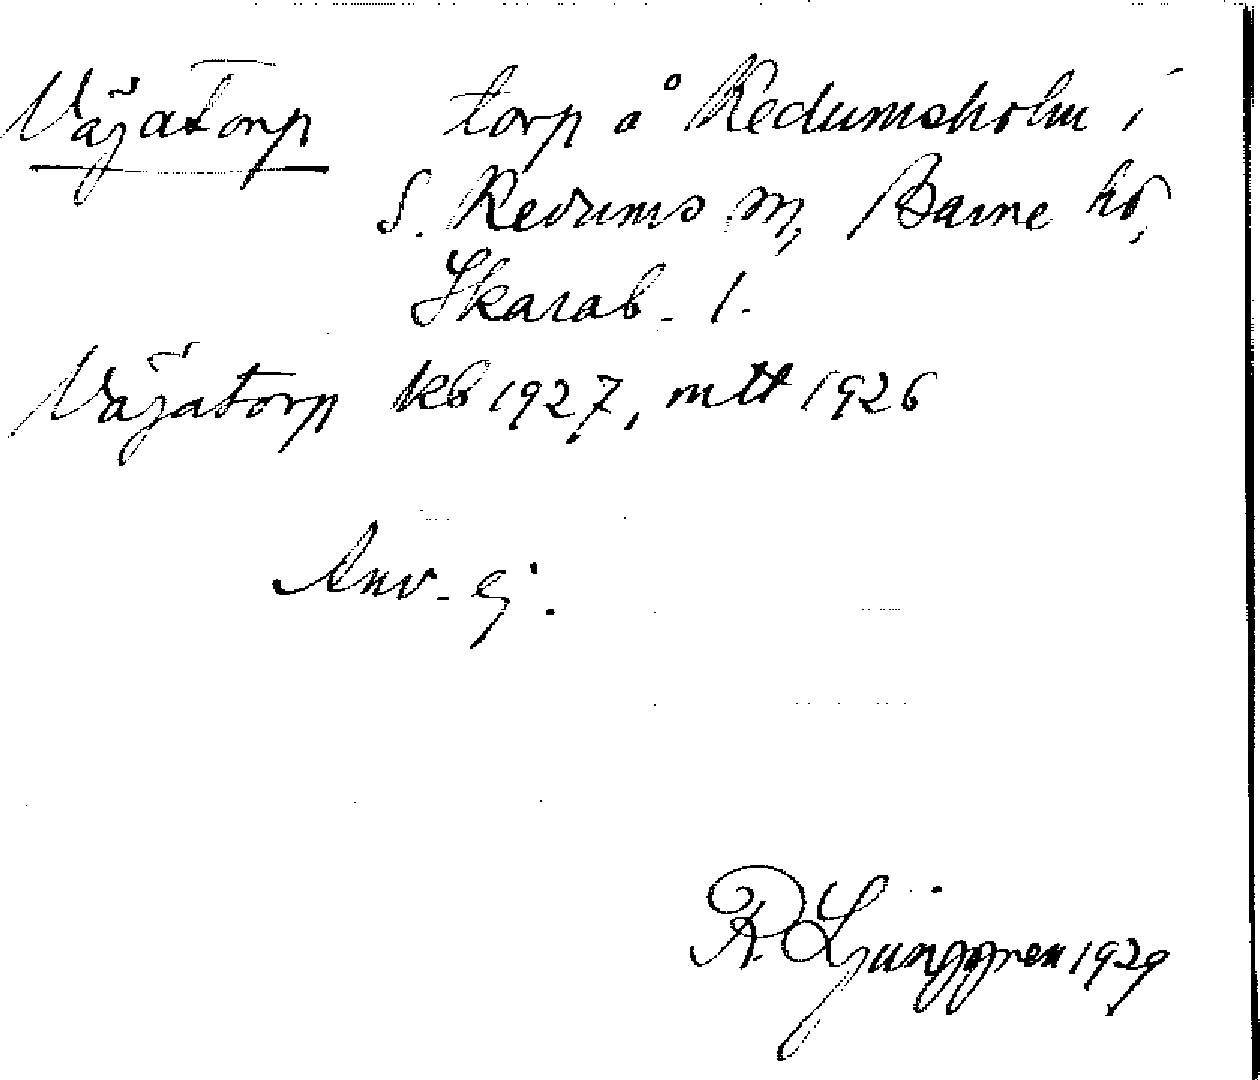 Väjatorp torp å Redumsholm i
S. Redums sn, Barne hd,
Skarab. l.
Väjatorp kb 1927, mtt 1926
Anv. ej.
R. Ljunggren 1929